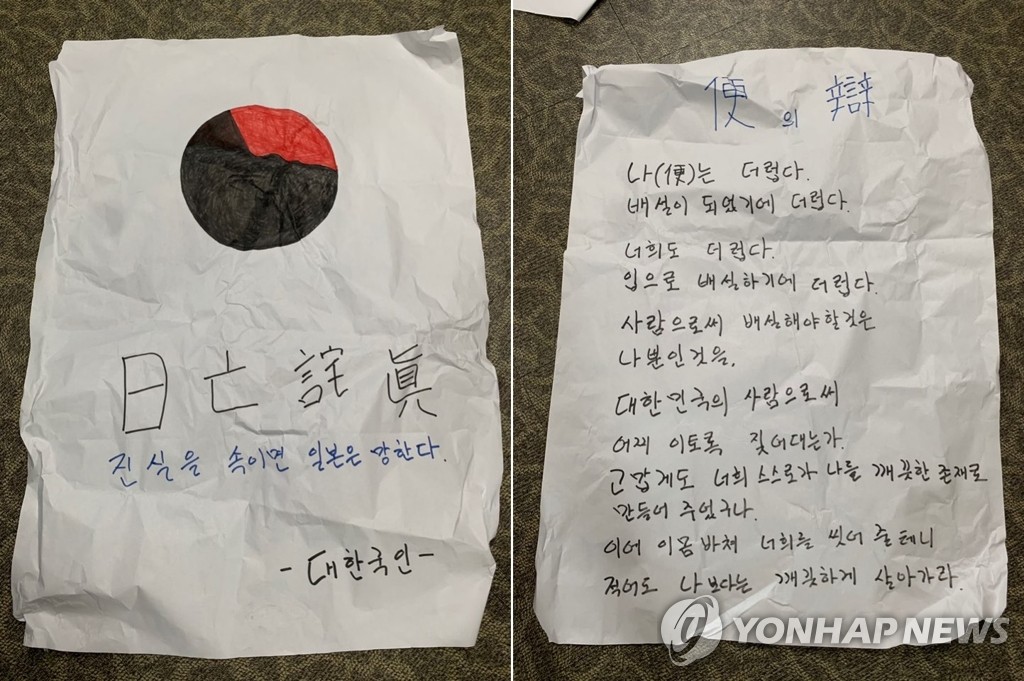 日亡詫眞
진실을 속이면 일본은 망한다.
-대한국인-
便의 辯
나(便)는 더럽다.
배설이 되었기에 더럽다.
너희도 더럽다.
입으로 배설하기에 더럽다.
사람으로써 배설해야할것은
나뿐인것을.
대한민국의 사람으로써
어찌 이토록 짖어대는가.
고맙게도 너희 스스로가 나를 깨끗한 존재로
만들어 주었구나.
이에 이몸 바쳐 너희를 씻어 줄테니
적어도 나보다는 깨끗하게 살아가라.
YONHAP NEWS